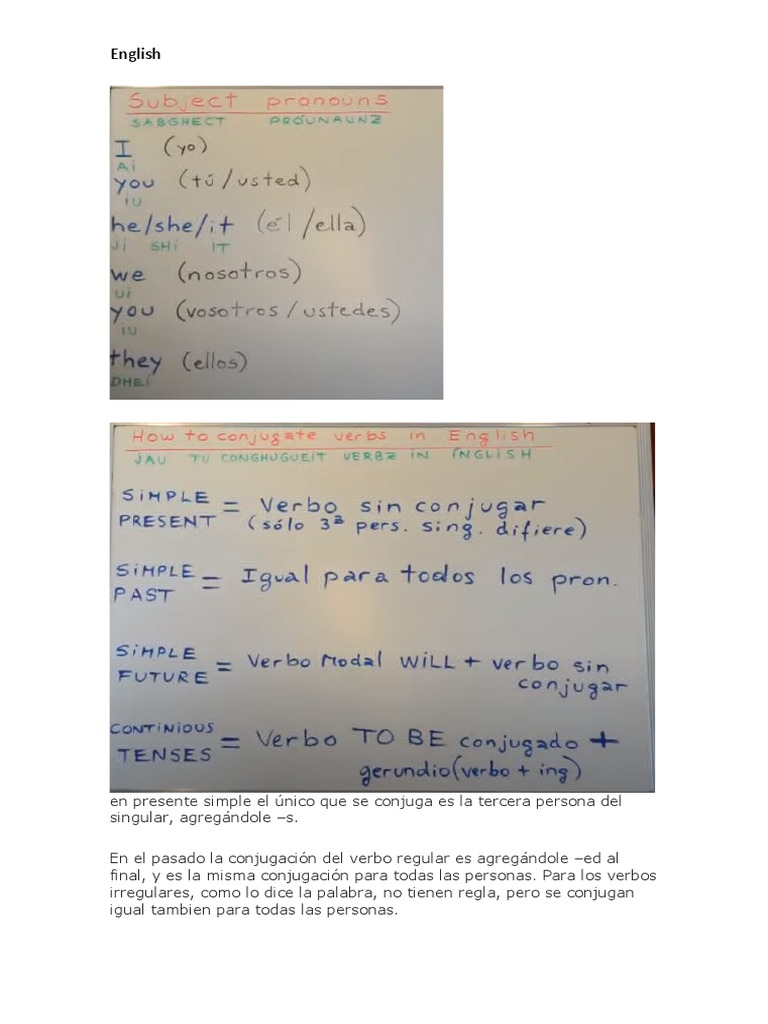 English
Subject pronouns
SABGHECT PRÓUNAUNZ
I (yo)
Ai
you (tú/usted)
iU
he/she/it (él/ella)
Ji SHi iT
we (nosotros)
Ui
you (vosotros/ustedes)
iU
they (ellos)
DHEi
How to conjugate verbs in English
JAU TU CONGHUGUEiT VERBZ iN ÍNGLiSH
SiMPLE PRESENT = Verbo sin conjugar
(sólo 3ª pers. sing. difiere)
SiMPLE PAST = Igual para todos los pron.
SiMPLE FUTURE = Verbo Modal WiLL + verbo sin
conjugar
CONTiNiOUS TENSES = Verbo TO BE conjugado +
gerundio(verbo + ing)
en presente simple el único que se conjuga es la tercera persona del
singular, agregándole –s.
En el pasado la conjugación del verbo regular es agregándole –ed al
final, y es la misma conjugación para todas las personas. Para los verbos
irregulares, como lo dice la palabra, no tienen regla, pero se conjugan
igual tambien para todas las personas.